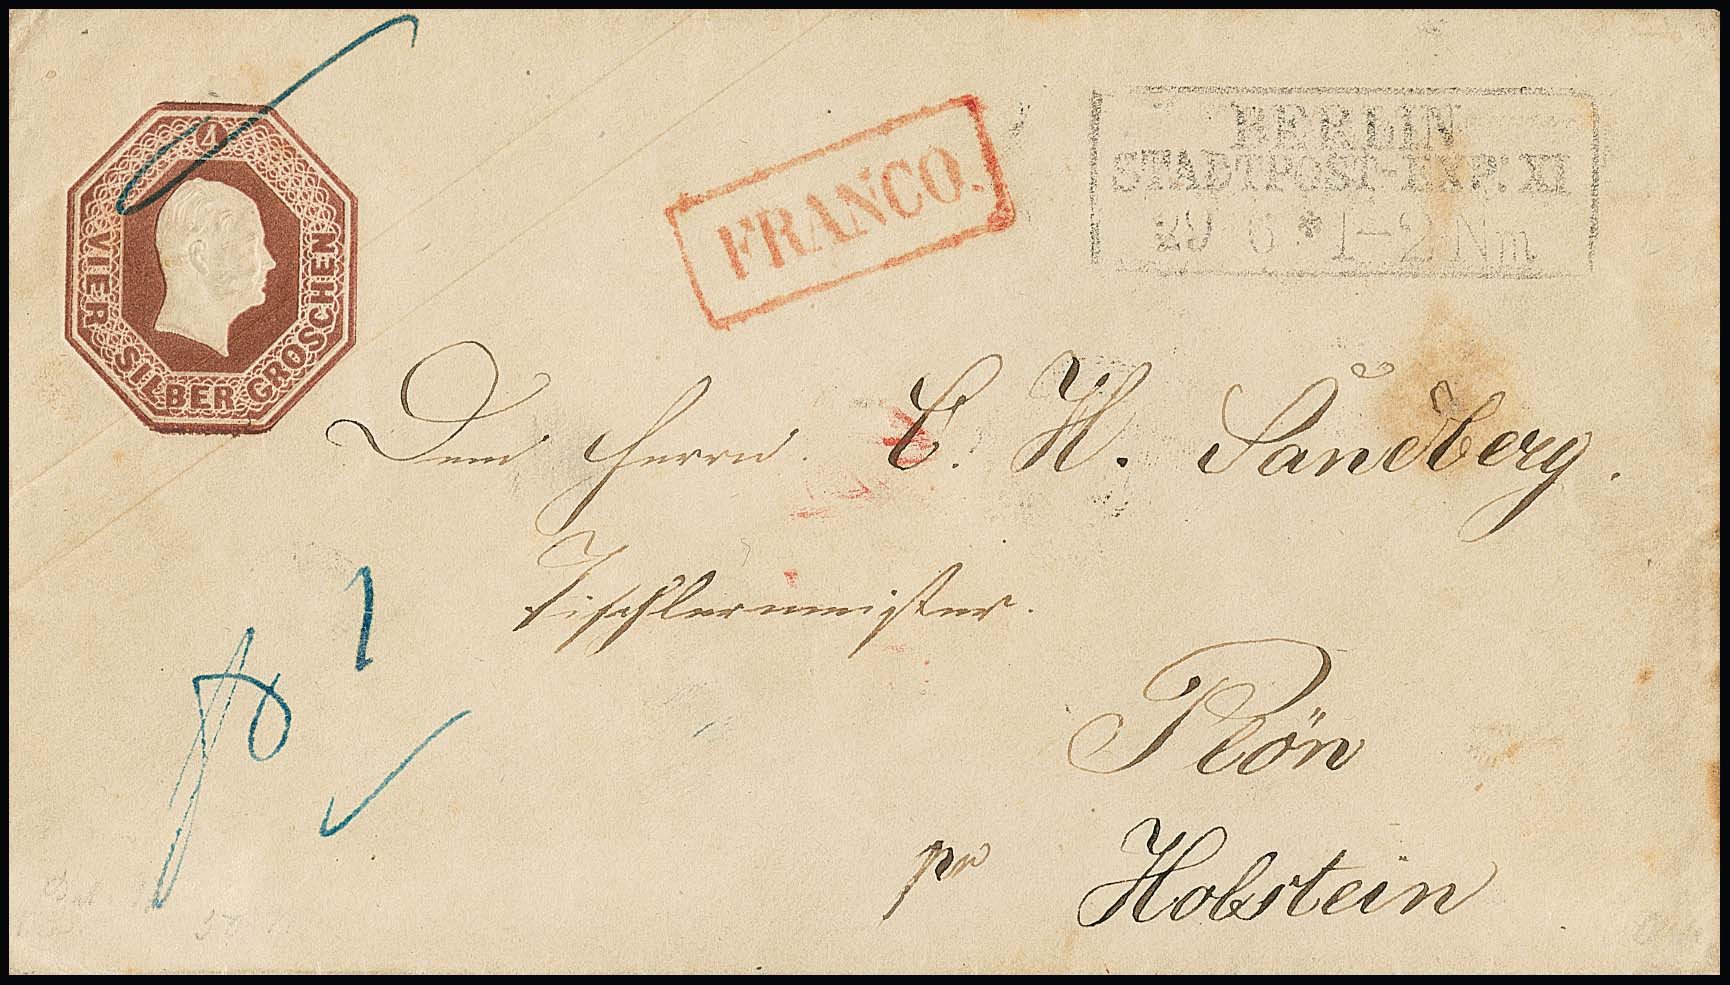 4
VIER SILBER GROSCHEN
FRANCO.
BERLIN
STADTPOST-EXP. XI
29 6 * 1-2 Nm
Dem Herrn. C. H. Sandberg.
Tischlermeister.
Plön
pr Holstein
1